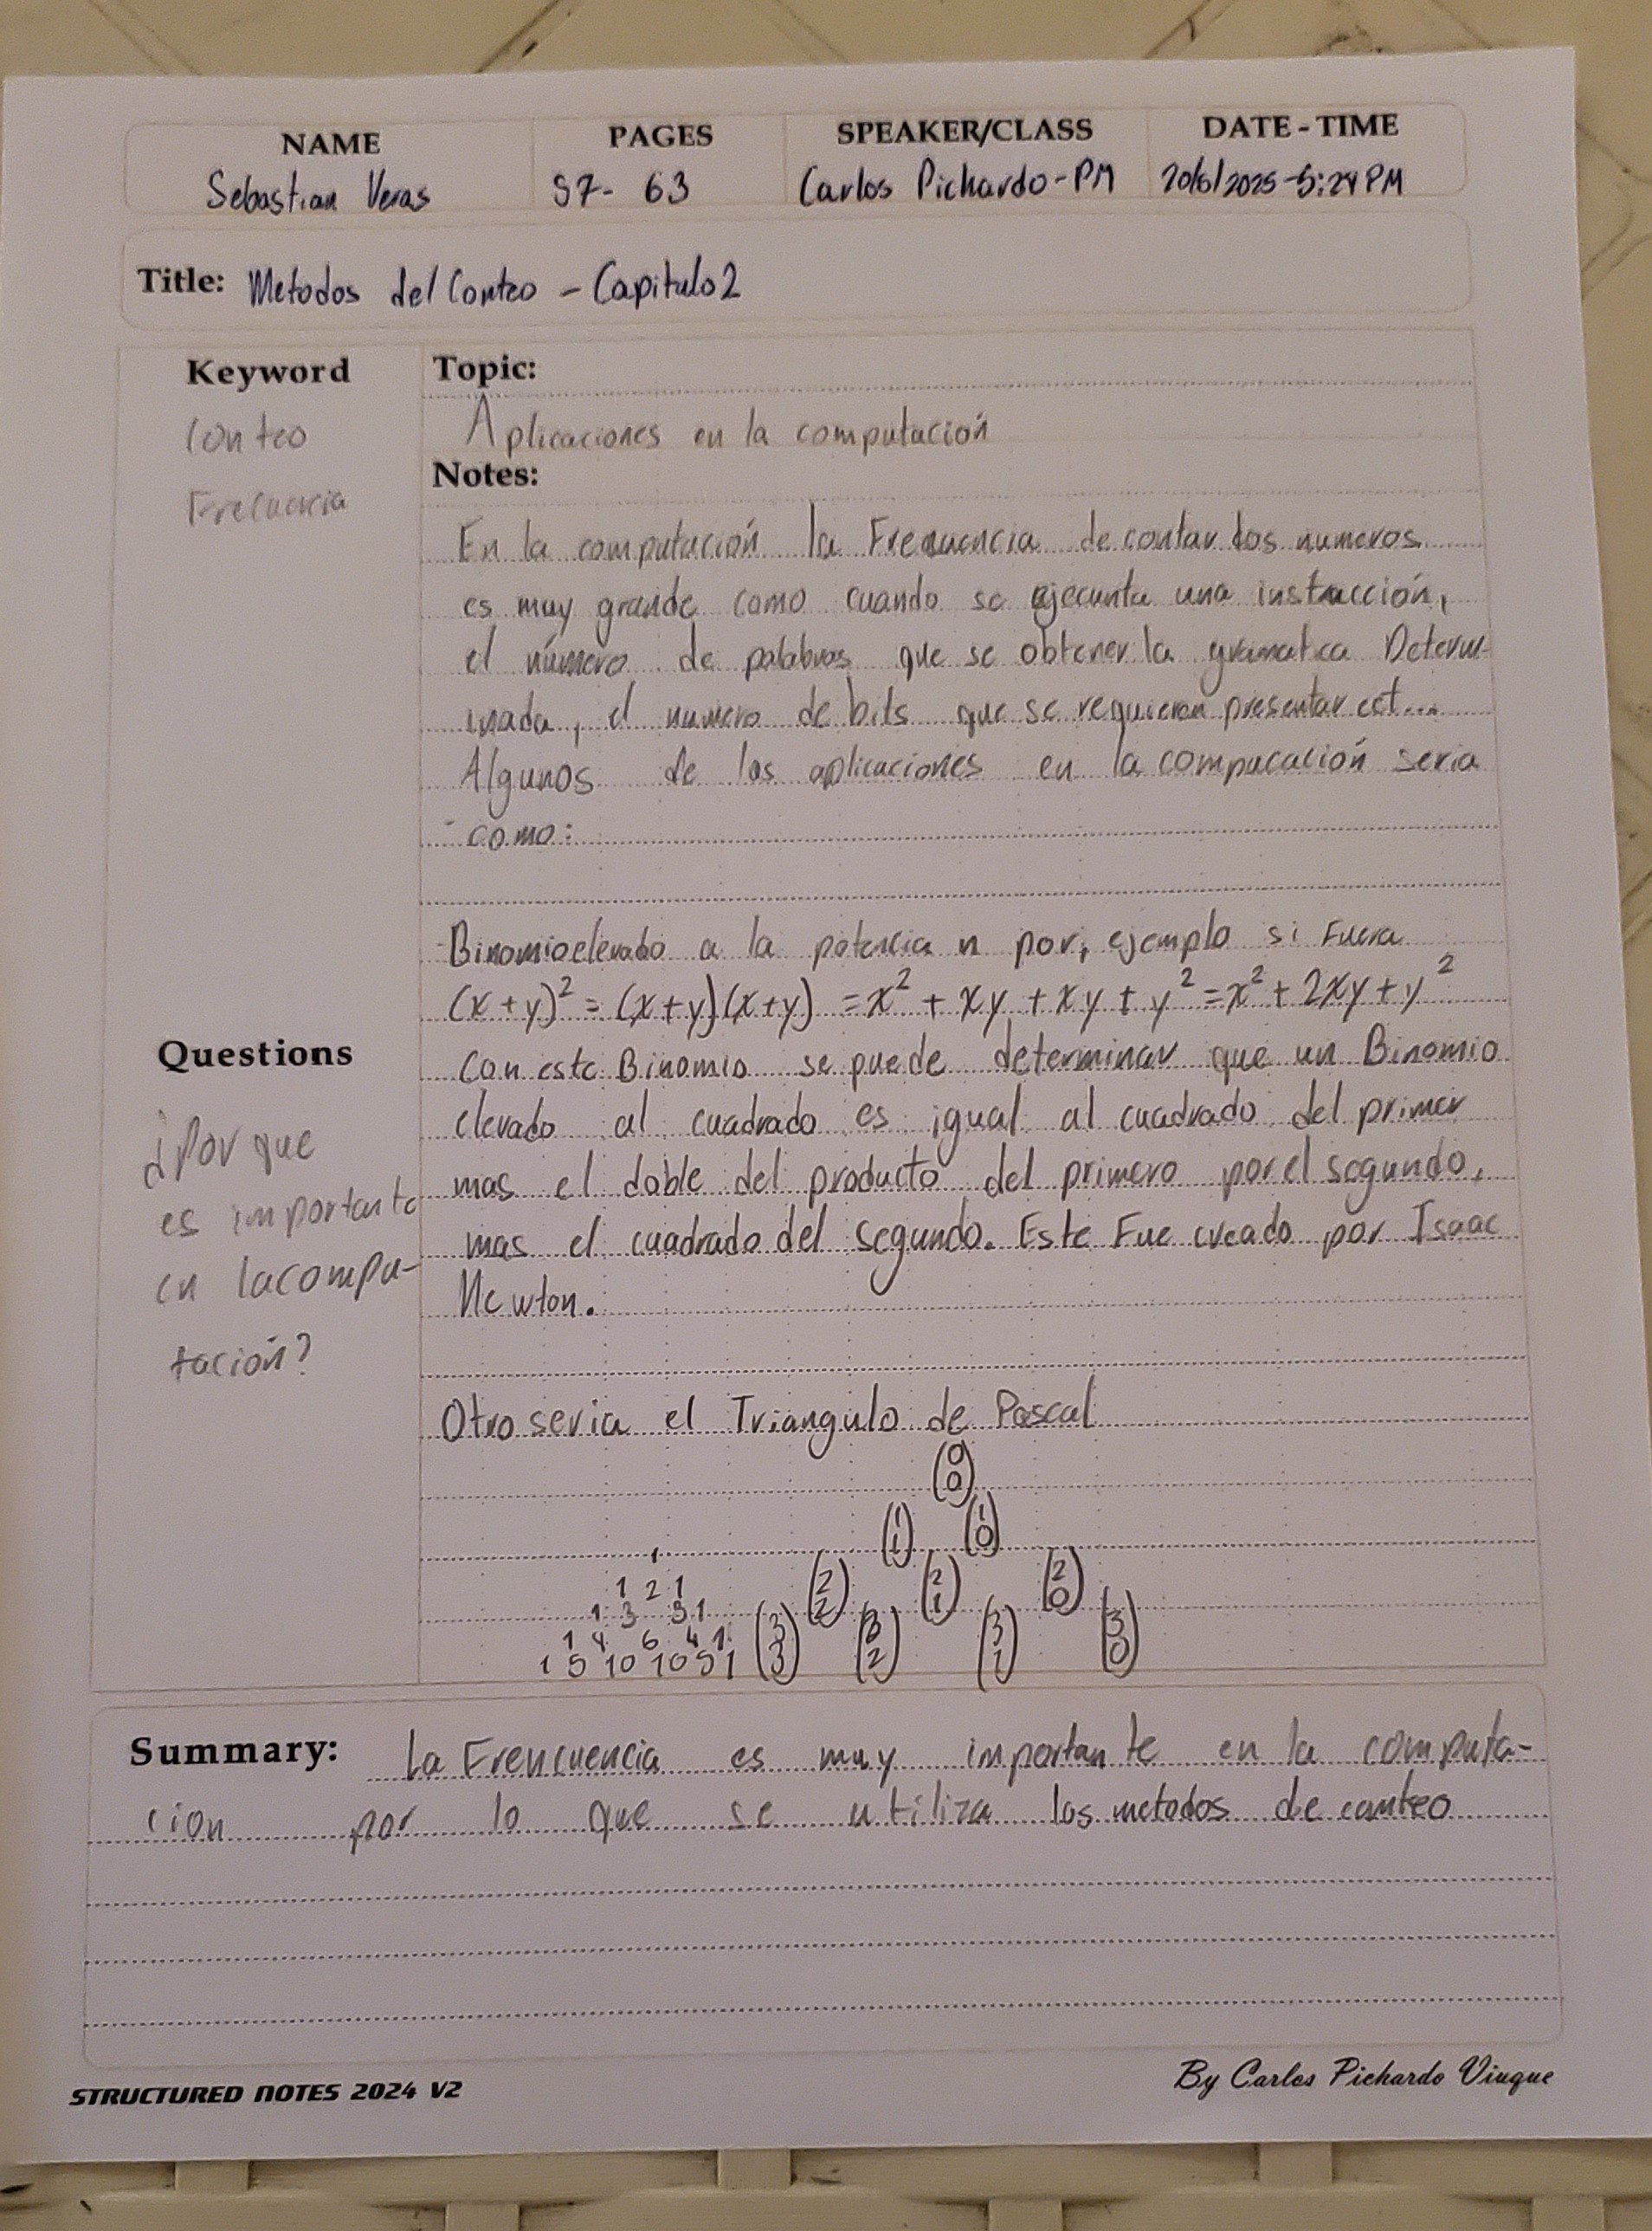 NAME PAGES SPEAKER/CLASS DATE - TIME
Sebastian Veras 57- 63 Carlos Pichardo-PM 20/6/2025-5:24PM
Title: Metodos del Conteo - Capitulo 2
Keyword
Conteo
Frecuencia
Topic:
Aplicaciones en la computación
Notes:
En la computación la Frecuencia de contar los numeros
es muy grande como cuando se ejecunta una instrucción,
el número de palabras que se obtener la gramatica Determ-
inada, el numero de bits que se requieren presentar ect...
Algunos de las aplicaciones en la compucación seria
- como:
-Binomio elevado a la potencia n por, ejemplo si Fuera
(x+y)² = (x+y)(x+y) = x² + xy + xy + y² = x² + 2xy + y²
Con este Binomio se puede determinar que un Binomio
elevado al cuadrado es igual al cuadrado del primer
mas el doble del producto del primero por el segundo,
mas el cuadrado del segundo. Este Fue creado por Isaac
Newton.
Questions
¿Por que
es importante
en la compu-
tación?
Otro seria el Triangulo de Pascal
1
1 2 1
1 3 3 1
1 4 6 4 1
1 5 10 10 5 1
(0 0)
(1 1) (1 0)
(2 2) (2 1) (2 0)
(3 3) (3 2) (3 1) (3 0)
Summary: La Frencuencia es muy importante en la computa-
cion por lo que se utiliza los metodos de conteo
STRUCTURED NOTES 2024 V2
By Carlos Pichardo Viuque